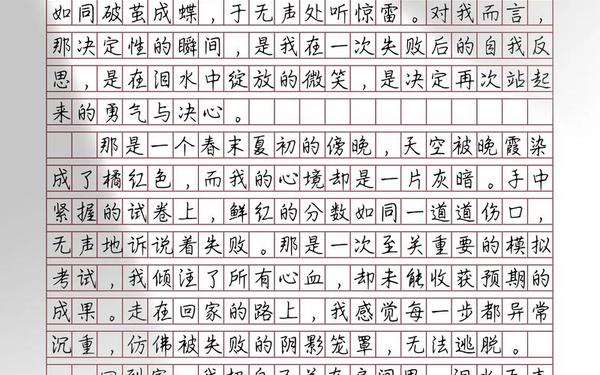 如同破茧成蝶，于无声处听惊雷。对我而言，
那决定性的瞬间，是我在一次失败后的自我反
思，是在泪水中绽放的微笑，是决定再次站起
来的勇气与决心。
那是一个春末夏初的傍晚，天空被晚霞染
成了橘红色，而我的心境却是一片灰暗。手中
紧握的试卷上，鲜红的分数如同一道道伤口，
无声地诉说着失败。那是一次至关重要的模拟
考试，我倾注了所有心血，却未能收获预期的
成果。走在回家的路上，我感觉每一步都异常
沉重，仿佛被失败的阴影笼罩，无法逃脱。